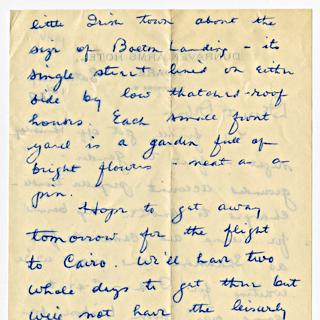 little Irish town about the
size of Bolton Landing - its
single street lined on either
side by low thatched-roof
houses. Each small front
yard is a garden full of
bright flowers - neat as a
pin.
Hope to get away
tomorrow for the flight
to Cairo. We'll have two
whole days to get there but
will not have the leisurely
DUNRAVEN ARMS HOTEL